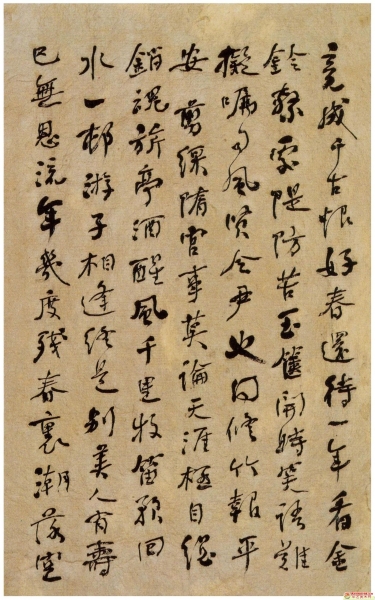 竟成千古恨好春還待一年看金
鈴繫索隄防苦玉饌開時笑語難
擬囑司風賢令尹也同修竹報平
安 剪綵隋宮事莫論天涯極目總
銷魂旂亭酒醒風千里牧笛歌回
水一邨游子相逢終是別美人有壽
已無恩流年幾度殘春裏潮落空